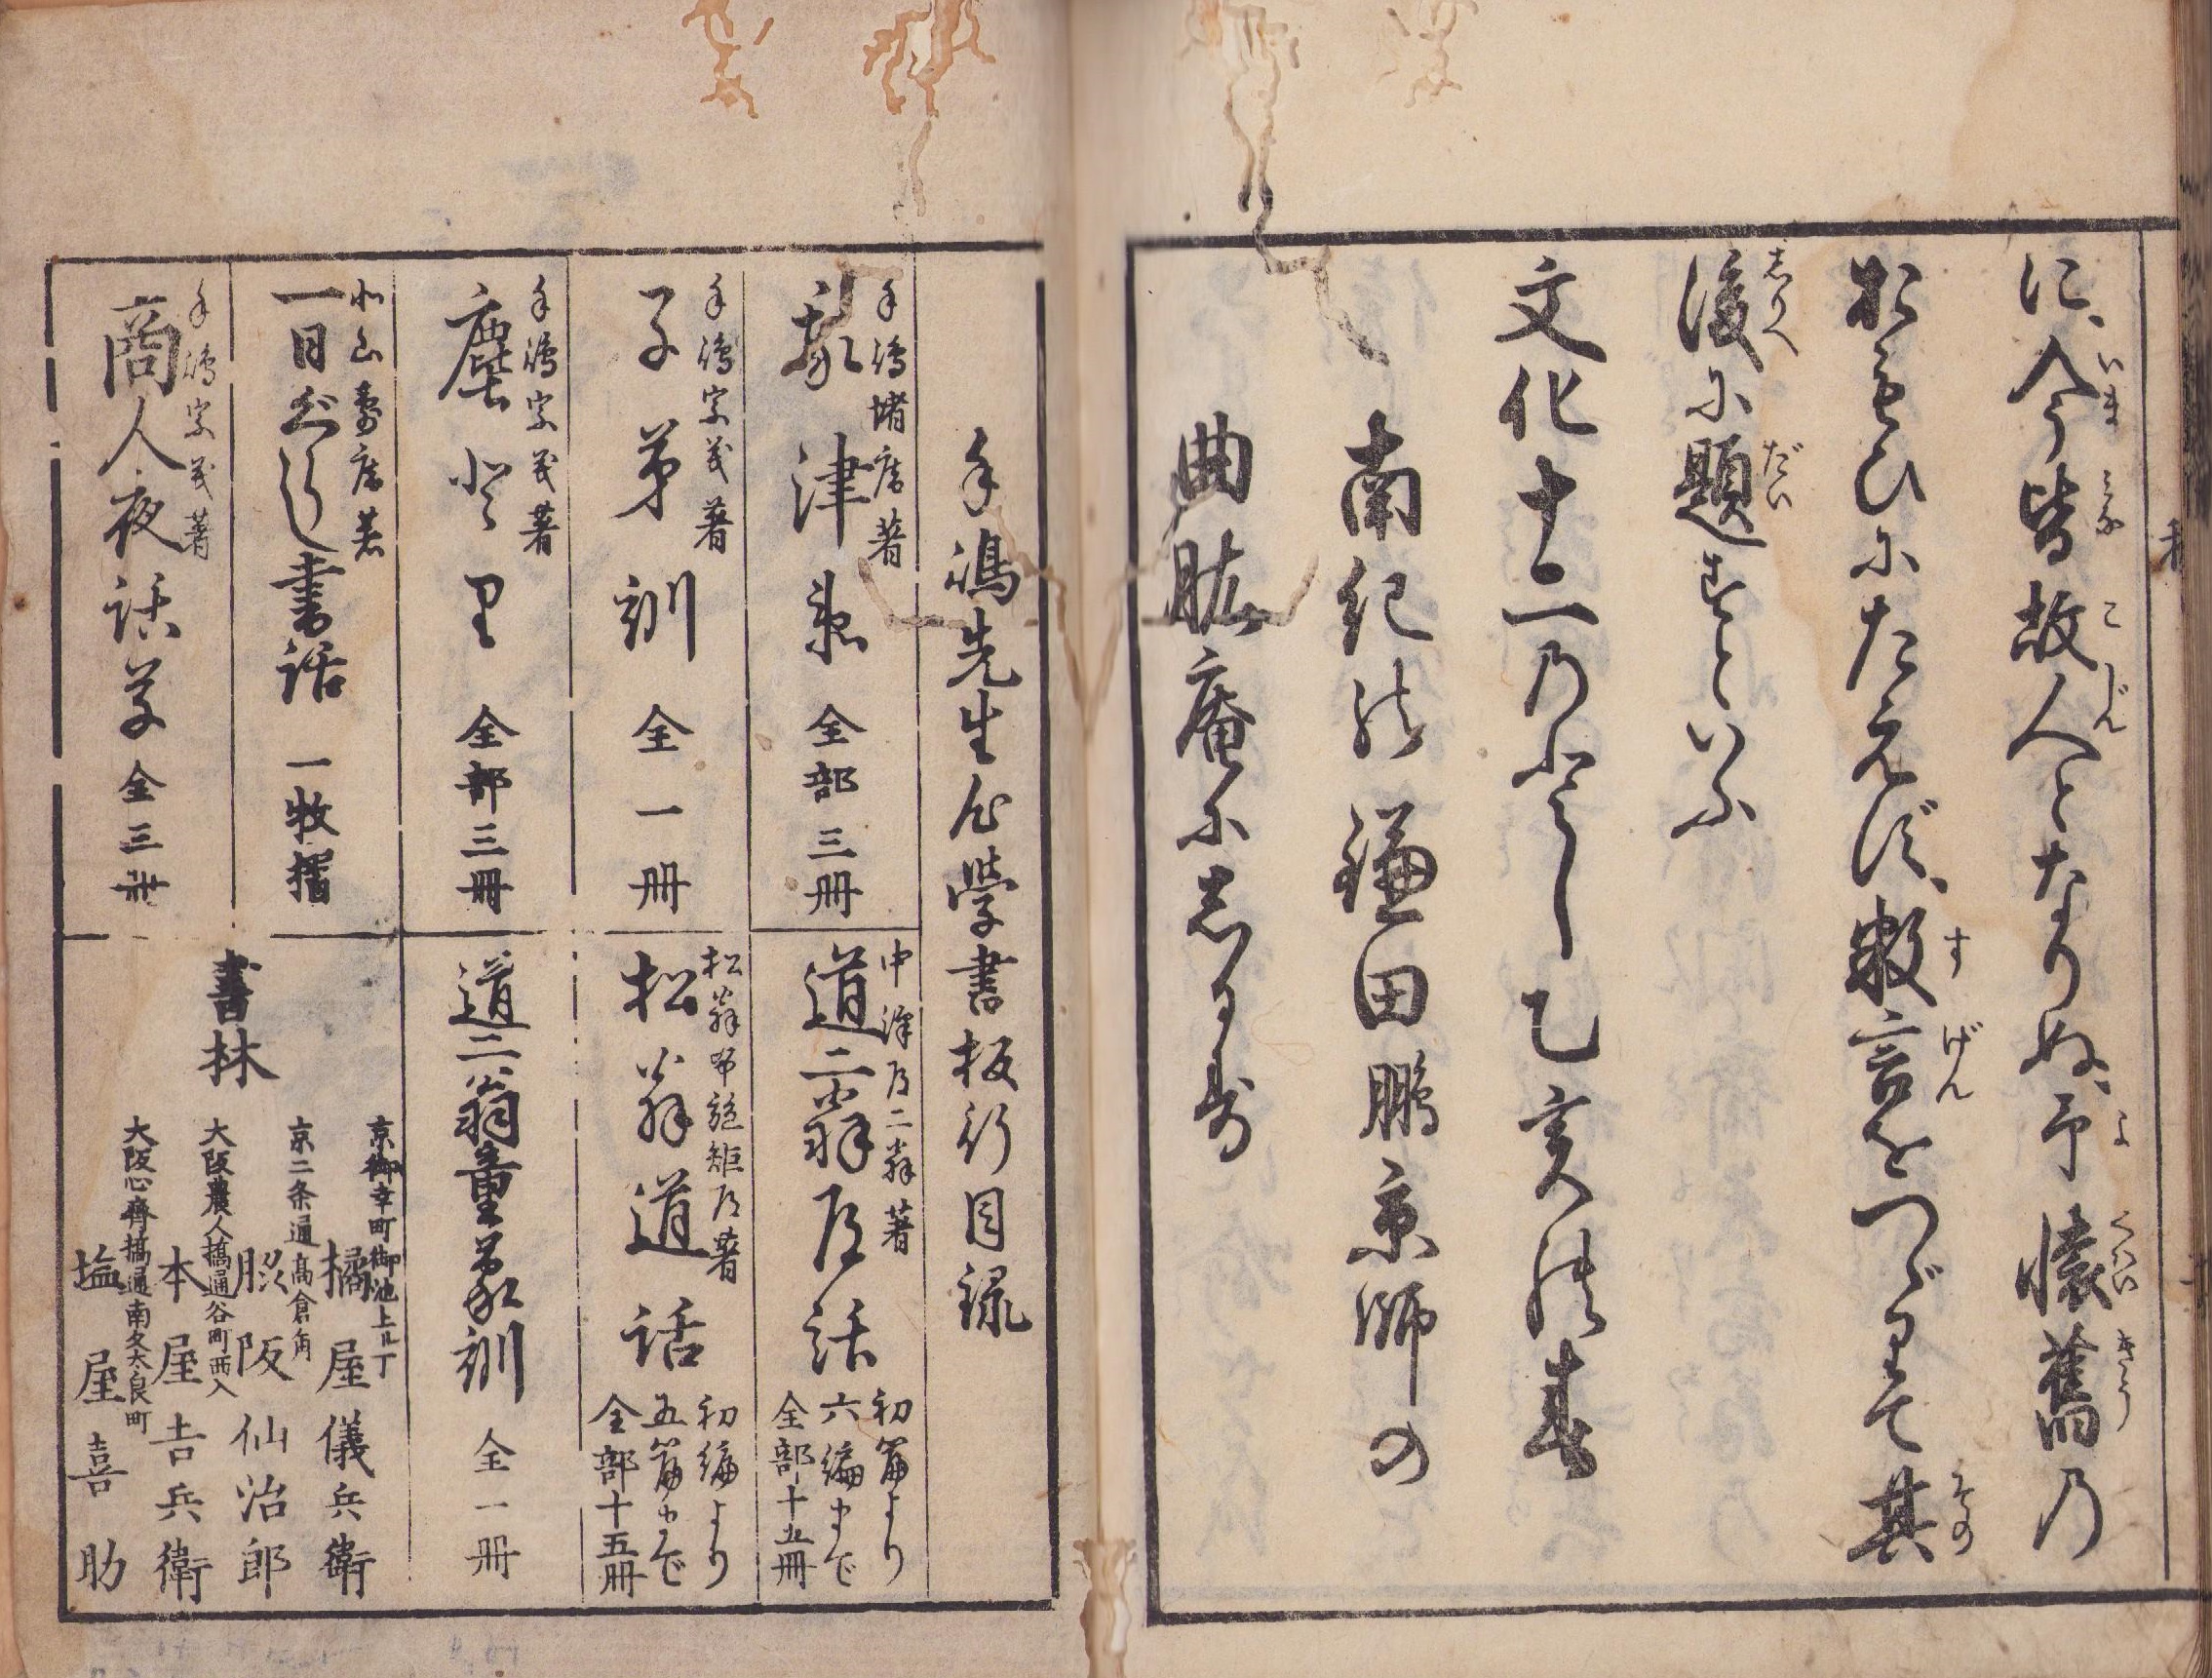 に、今は皆故人となりぬ、予懐舊乃
いま みな こじん よ くハい きう
おもひにたえず、数言をつゞりて其
す げん その
後に題すといふ
しりへ だい
文化十二乃とし乙亥の春
南紀の鎌田鵬京師の
曲肱庵にしるす
手嶋先生心學書板行目録
手嶋堵庵著
我津恵 全部三冊
手嶋宗義著
子弟訓 全一冊
手嶋宗義著
塵とり 全部三冊
北山壽庵著
一日ぐらし書話 一枚摺
手嶋宗義著
商人夜話草 全三冊
中澤道二翁著
道二翁道話
初篇より
六編まで
全部十五冊
松翁布施矩道著
松翁道話
初編より
五篇まで
全部十五冊
道二翁童蒙訓 全一冊
書林
京御幸町御池上ル丁
橘屋儀兵衛
京二条通髙倉角
勝阪仙治郎
大阪農人橋通谷町西入
本屋吉兵衛
大阪心齋橋通南久太良町
塩屋喜助